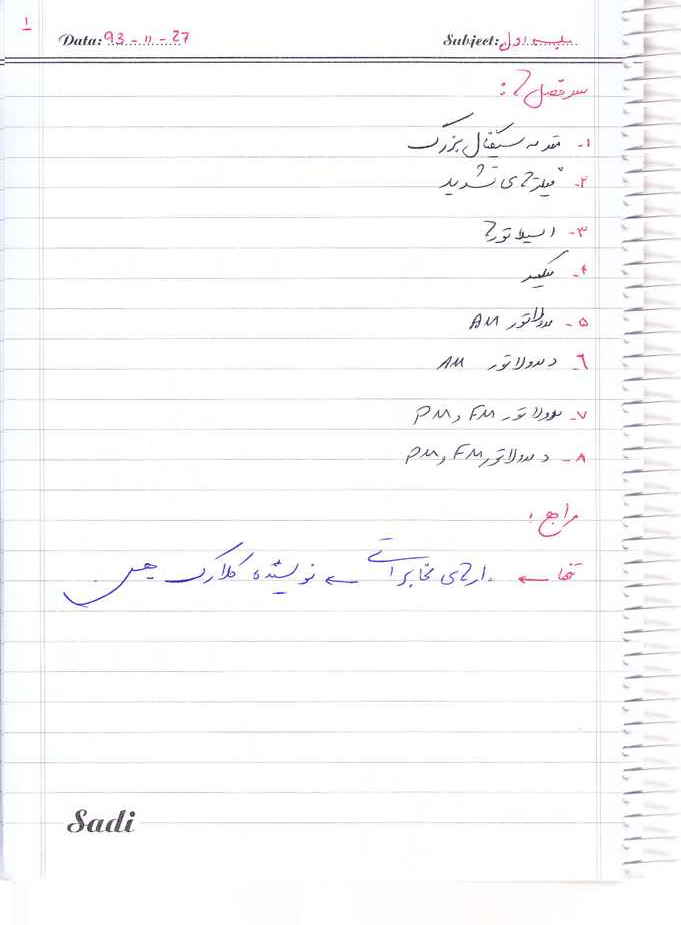 ۱
Data: 93-11-27
Subject: جلسه اول
سرفصل ها:
۱- مقدمه سیگنال بزرگ
۲- فیلترهای تشدید
۳- اسیلاتورها
۴- میکسر
۵- مدولاتور AM
۶- دمدولاتور AM
۷- مدولاتور FM و PM
۸- دمدولاتور FM و PM
مراجع:
تنها ← مدارهای مخابراتی ← نویسنده کلارک هس
Sadi